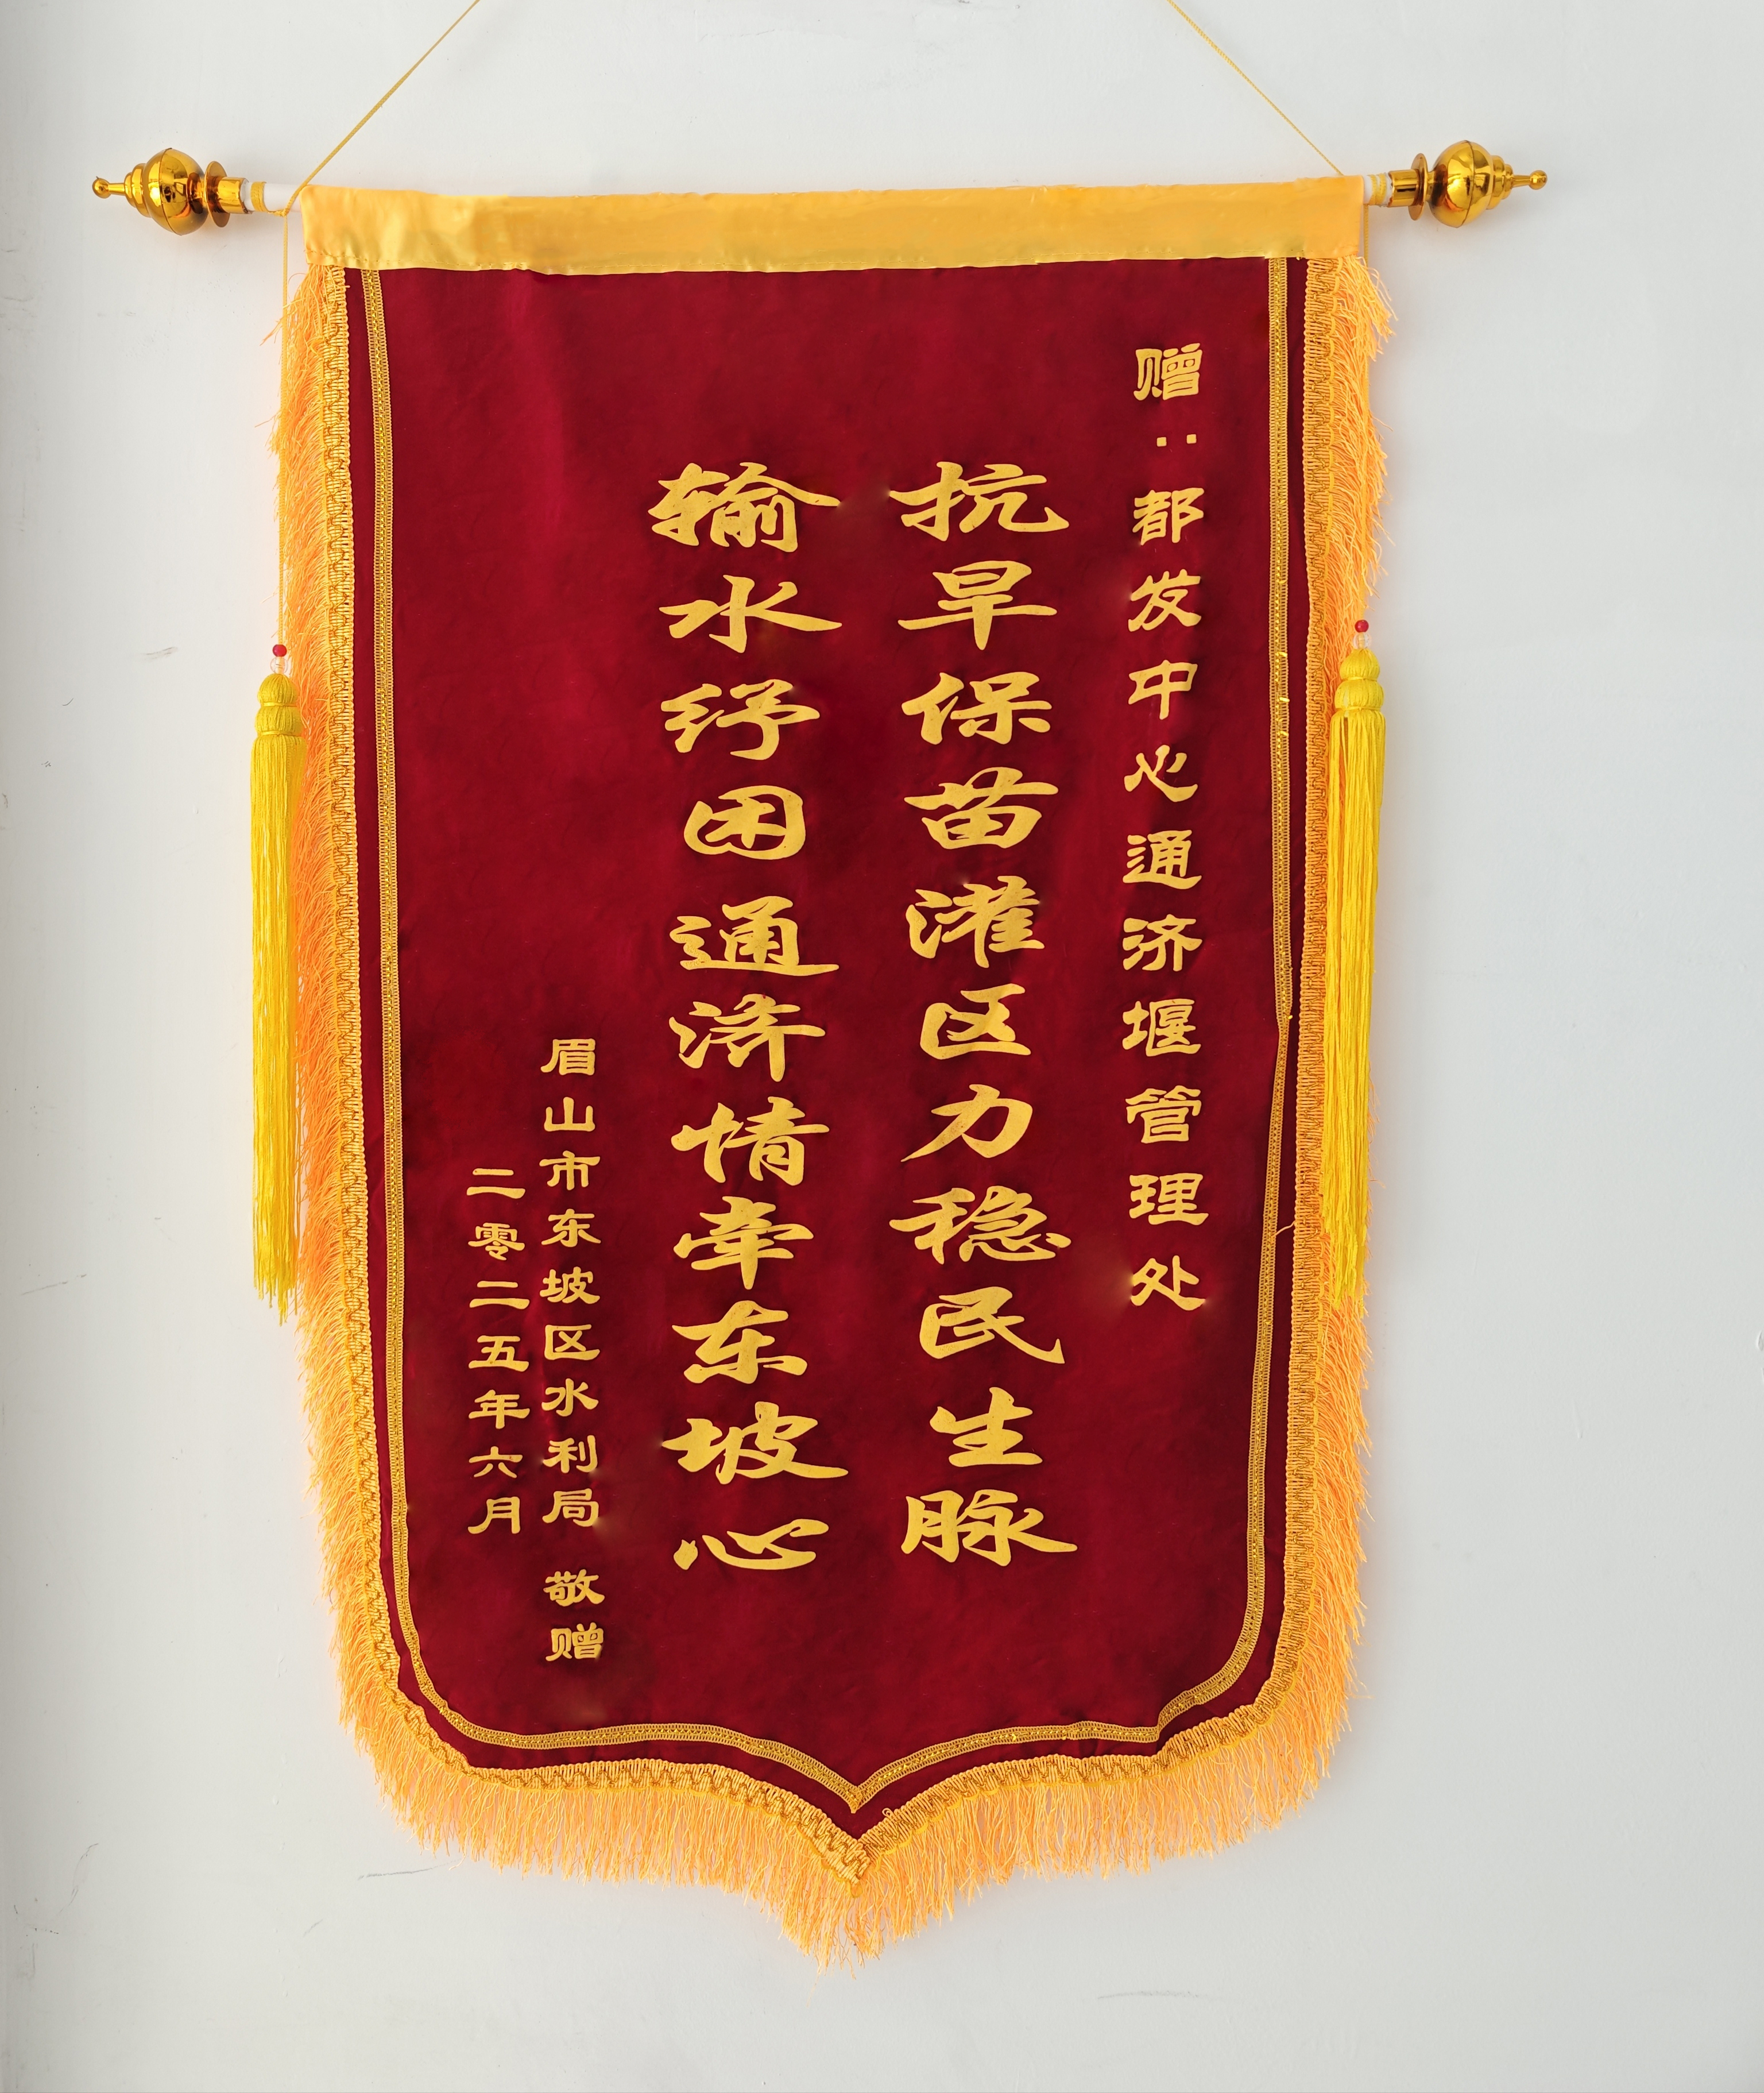 赠：都发中心通济堰管理处
抗旱保苗灌区力稳民生脉
输水纾困通济情牵东坡心
眉山市东坡区水利局 敬赠
二零二五年六月